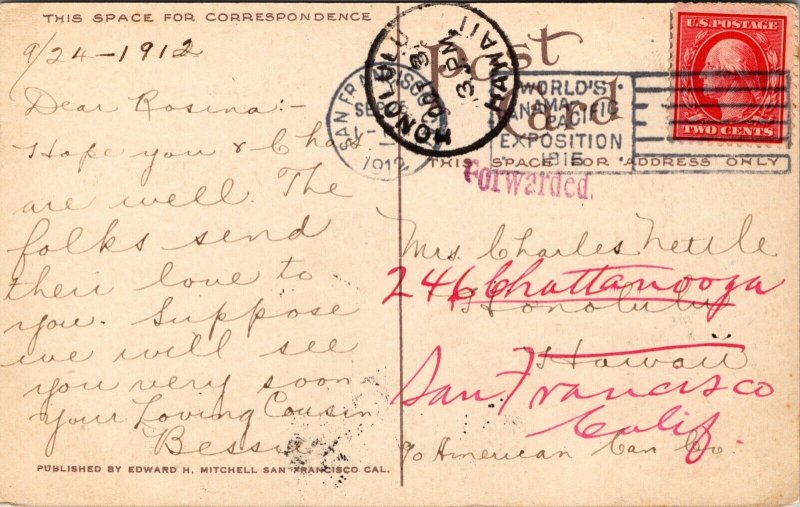 THIS SPACE FOR CORRESPONDENCE
9/24-1912
Dear Rosina:-
Hope you & Chas
are well. The
folks send
their love to
you. Suppose
we will see
you very soon
Your Loving Cousin
Bessie
PUBLISHED BY EDWARD H. MITCHELL SAN FRANCISCO. CAL.
Post Card
THIS SPACE FOR ADDRESS ONLY
SAN FRANCISCO
SEP
1912
HONOLULU HAWAII
3 PM
WORLD'S
PANAMA PACIFIC
EXPOSITION
1915
U.S. POSTAGE
TWO CENTS
Forwarded.
Mrs. Charles Nettle
246 Chattanooga
Honolulu
Hawaii
San Francisco
Calif.
c/o American Can Co.